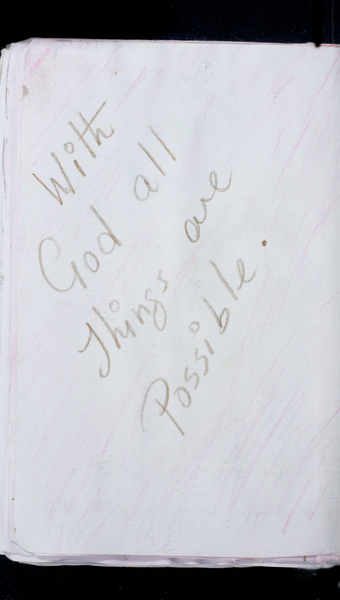 With
God all
Things are
Possible.